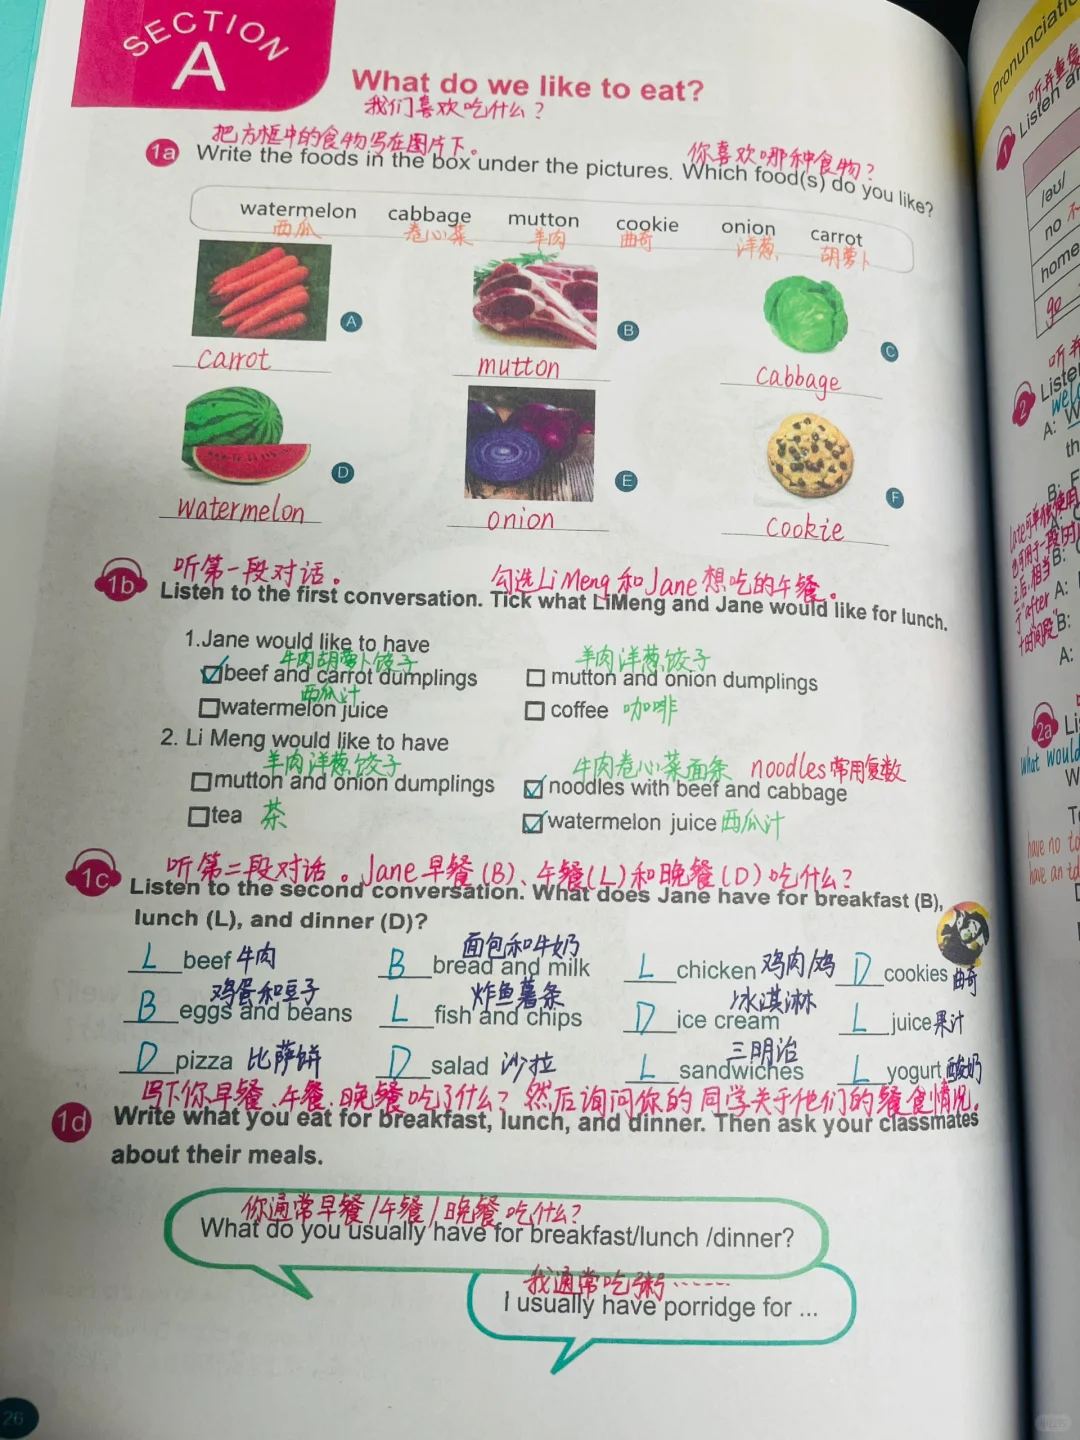 SECTION
A
What do we like to eat?
我们喜欢吃什么？
把方框中的食物写在图片下。 你喜欢哪种食物？
1a Write the foods in the box under the pictures. Which food(s) do you like?
watermelon cabbage mutton cookie onion carrot
西瓜 卷心菜 羊肉 曲奇 洋葱 胡萝卜
A B C
carrot mutton cabbage
D E F
watermelon onion cookie
听第一段对话。 勾选Li Meng和Jane想吃的午餐。
1b Listen to the first conversation. Tick what LiMeng and Jane would like for lunch.
1.Jane would like to have
牛肉胡萝卜饺子 羊肉洋葱饺子
beef and carrot dumplings mutton and onion dumplings
西瓜汁
watermelon juice coffee 咖啡
2. Li Meng would like to have
羊肉洋葱饺子 牛肉卷心菜面条 noodles常用复数
mutton and onion dumplings noodles with beef and cabbage
tea 茶 watermelon juice 西瓜汁
听第二段对话。Jane早餐(B)、午餐(L)和晚餐(D)吃什么？
1c Listen to the second conversation. What does Jane have for breakfast (B),
lunch (L), and dinner (D)?
面包和牛奶
L beef 牛肉 B bread and milk L chicken 鸡肉/鸡 D cookies 曲奇
鸡蛋和豆子 炸鱼薯条 冰淇淋
B eggs and beans L fish and chips D ice cream L juice 果汁
三明治
D pizza 比萨饼 D salad 沙拉 L sandwiches L yogurt 酸奶
写下你早餐、午餐、晚餐吃了什么？然后询问你的同学关于他们的餐食情况。
1d Write what you eat for breakfast, lunch, and dinner. Then ask your classmates
about their meals.
你通常早餐/午餐/晚餐吃什么？
What do you usually have for breakfast/lunch /dinner?
我通常吃粥……
I usually have porridge for ...
26
Pronunciatio
1 Listen a
/əʊ/
no
home
go
2 Listen
A: W
th
B: F
B:
A:
B:
A:
2a Li
what would
W
have no to
have an